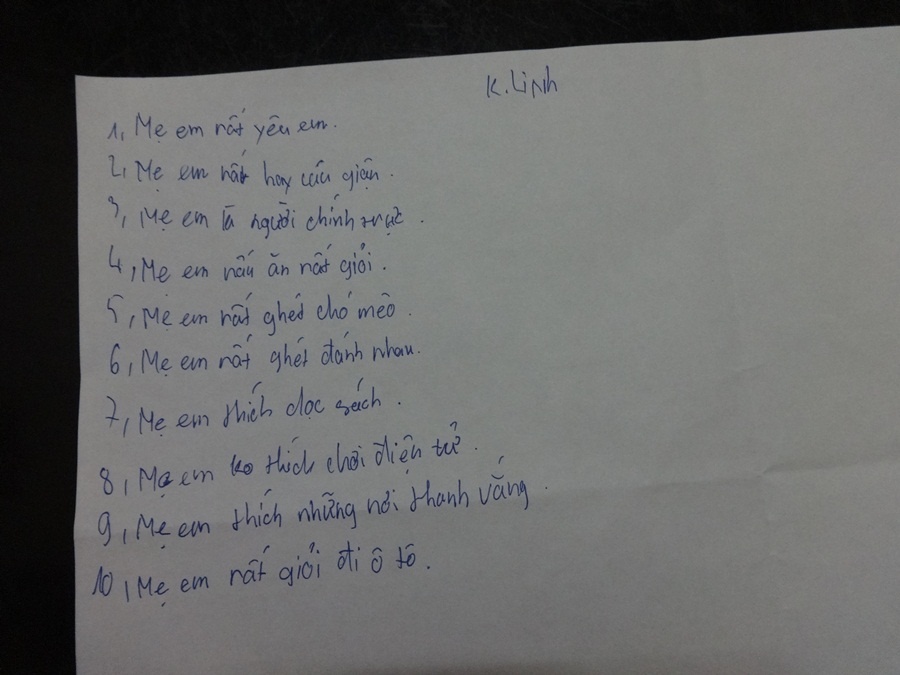 K. Linh
1, Mẹ em rất yêu em.
2, Mẹ em rất hay cáu giận.
3, Mẹ em là người chính trực.
4, Mẹ em nấu ăn rất giỏi.
5, Mẹ em rất ghét chó mèo.
6, Mẹ em rất ghét đánh nhau.
7, Mẹ em thích đọc sách.
8, Mẹ em ko thích chơi điện tử.
9, Mẹ em thích những nơi thanh vắng.
10, Mẹ em rất giỏi đi ô tô.